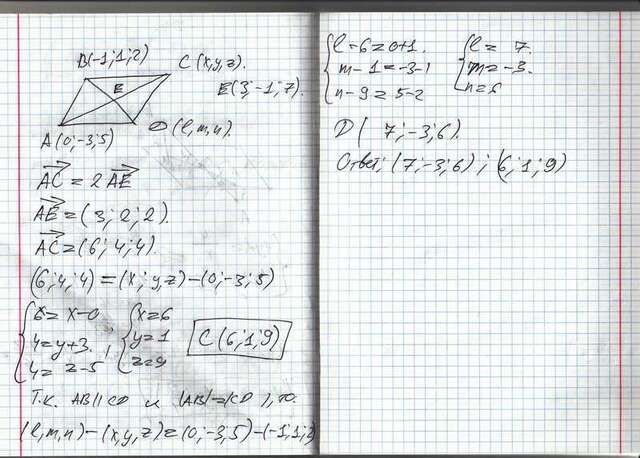 B(-1;1;2)
C(x,y,z).
E
E(3;-1;7).
A(0;-3;5)
D(l,m,n).
AC = 2 AE
AE = (3; 2; 2).
AC = (6; 4; 4).
(6; 4; 4) = (x; y, z) - (0; -3; 5)
6 = x - 0
x = 6
4 = y + 3.
;
y = 1
C(6; 1; 9)
4 = z - 5
z = 9
Т.к. AB || CD и |AB| = |CD|, то.
(l, m, n) - (x, y, z) = (0; -3, 5) - (-1; 1; 2)
l - 6 = 0 + 1.
l = 7.
m - 1 = -3 - 1
m = -3.
n - 9 = 5 - 2
D( 7; -3; 6).
Ответ; (7; -3; 6) ; (6; 1; 9)